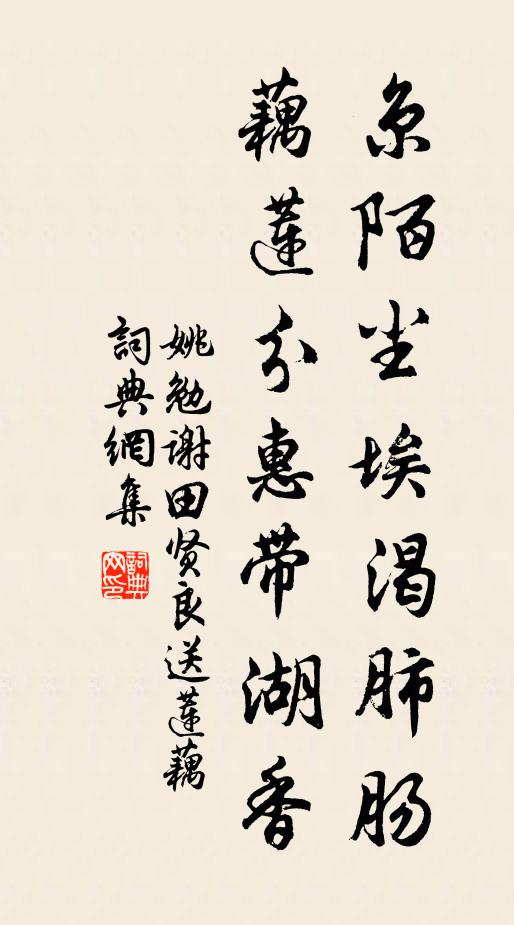 京陌尘埃渴肺肠
藕莲分惠带湖香
姚勉谢田贤良送莲藕
詞典網集
詞典网印